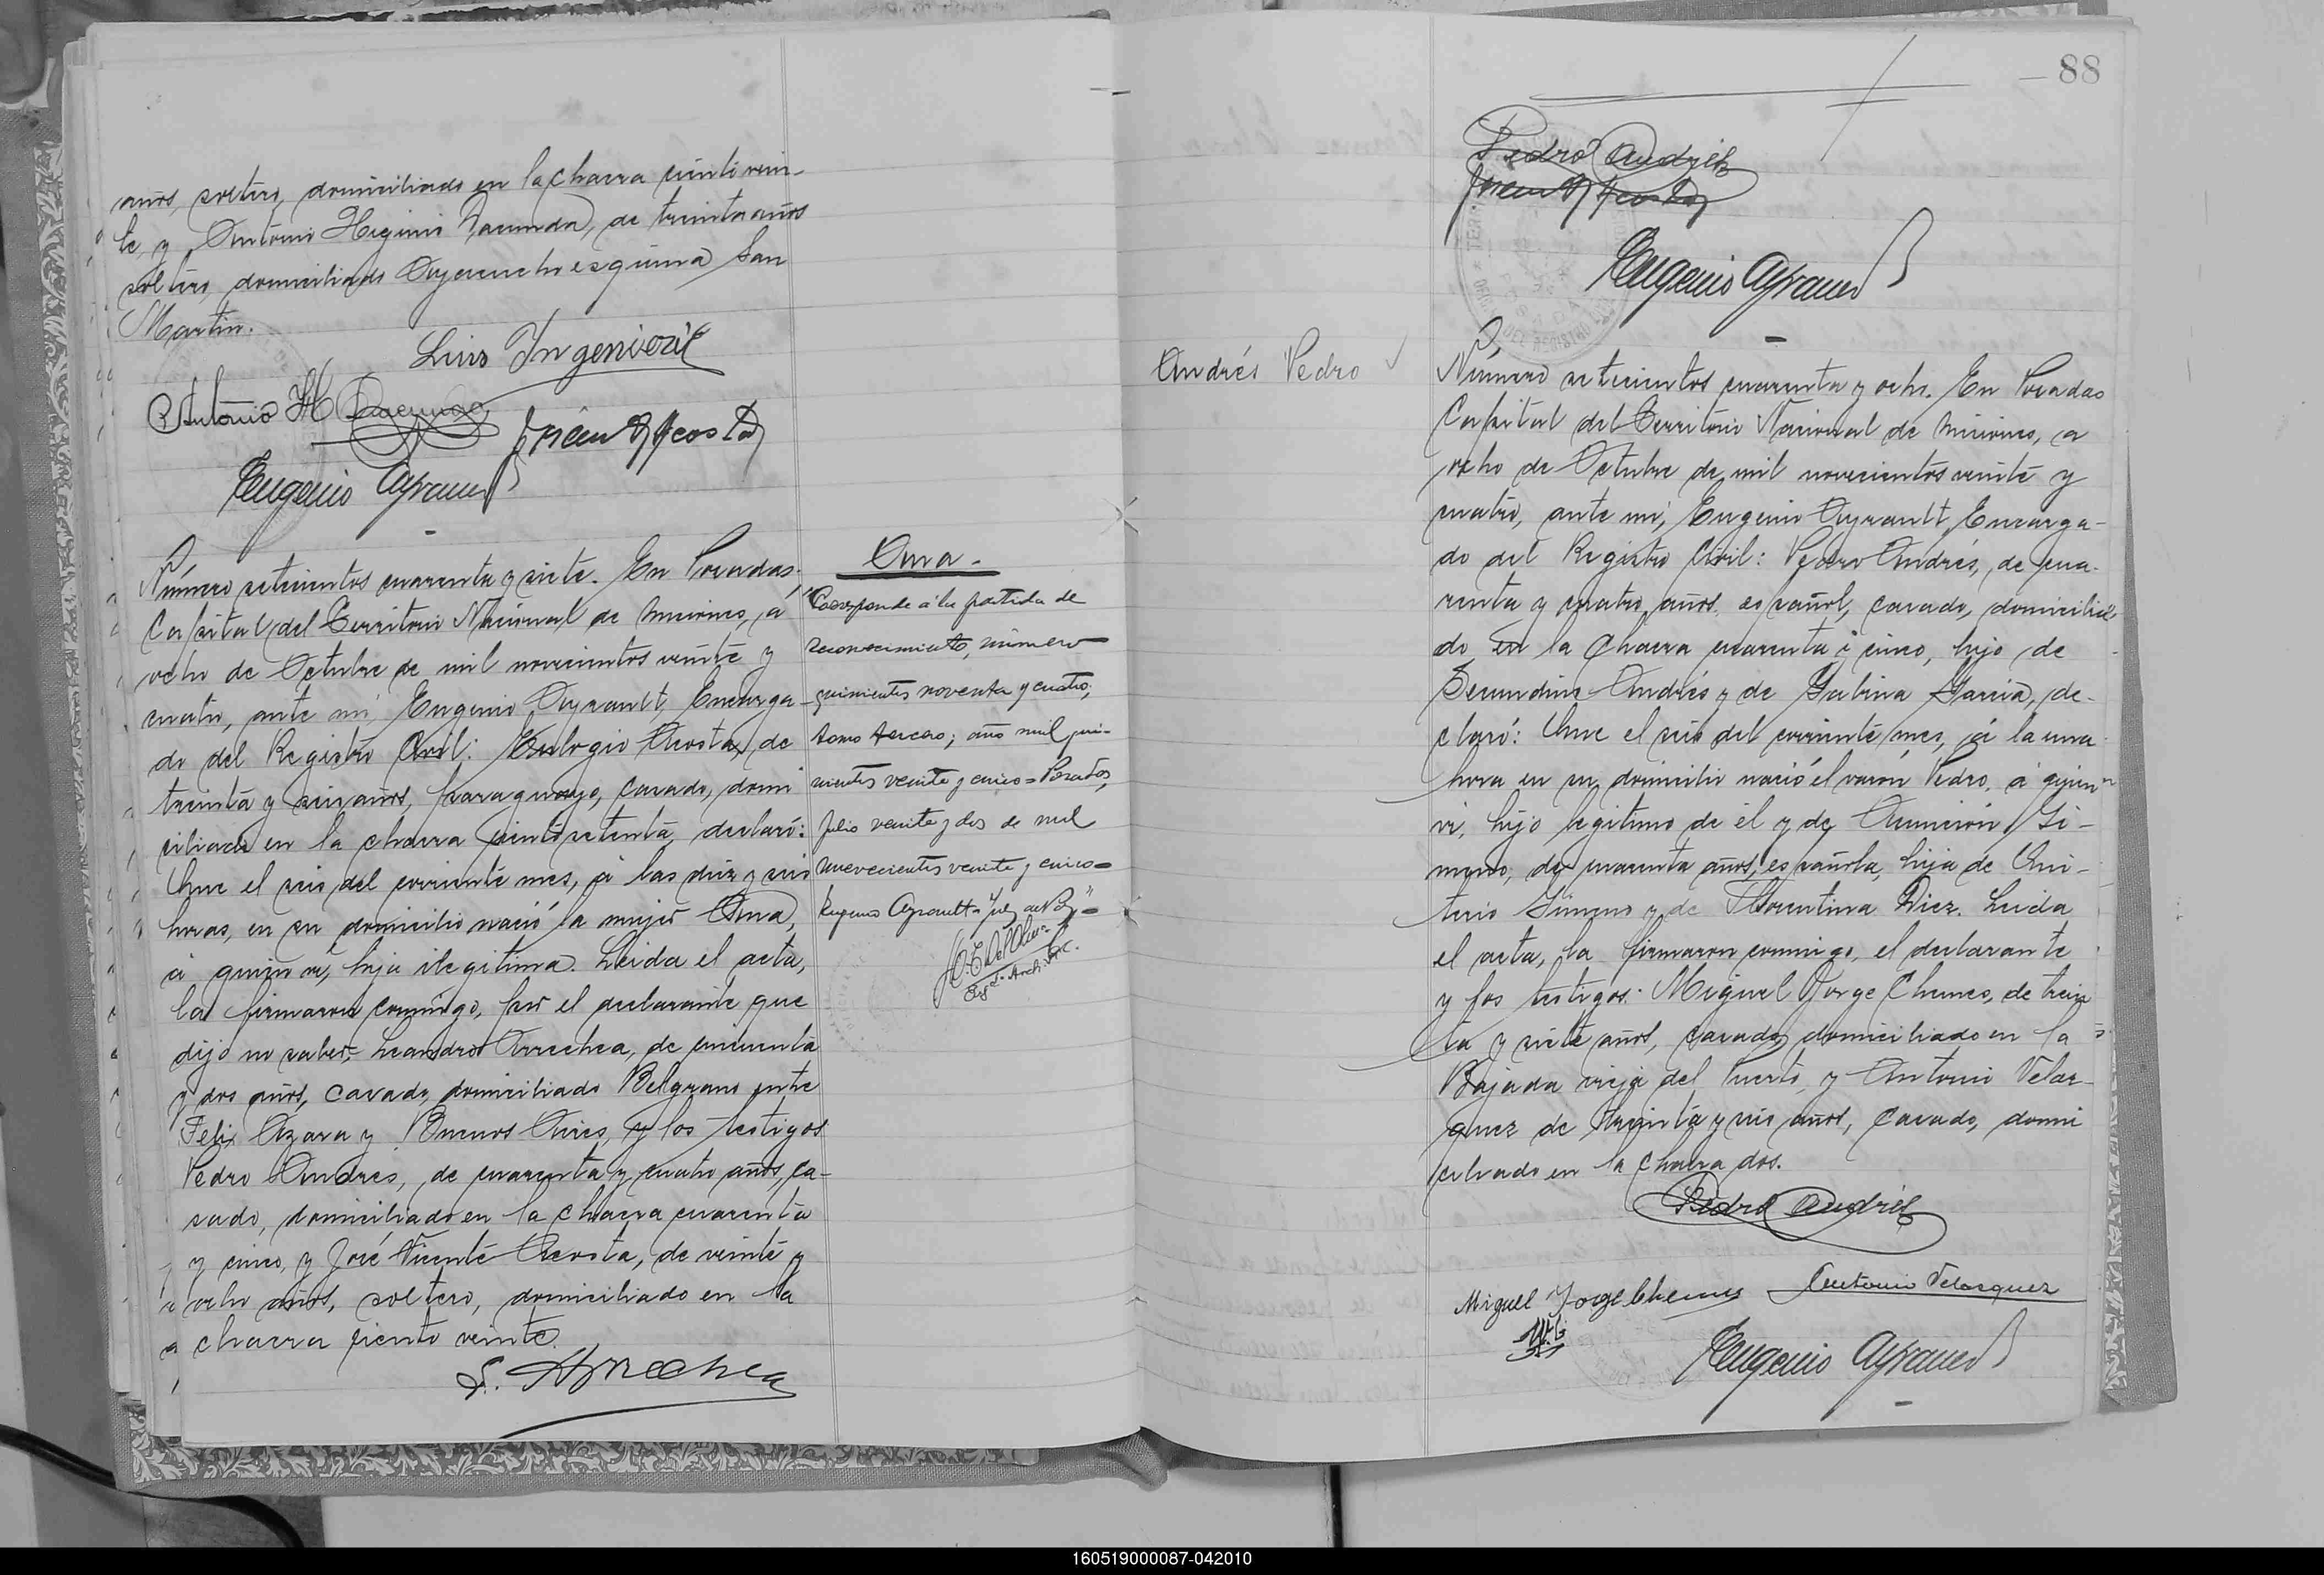 años, soltero, domiciliado en la chacra ciento vein-
te, y Antonio Higinio Dacunda, de treinta años
soltero, domiciliado Ayacucho esquina San
Martin.
Luis Ingenieri
Antonio H
Eugenio Ayrault
Número setecientos cuarenta y siete. En Posadas,
Capital del Territorio Nacional de Misiones, a
ocho de Octubre de mil novecientos veinte y
cuatro, ante mí, Eugenio Ayrault, Encarga-
do del Registro Civil: Eulogio Acosta, de
treinta y seis años, paraguayo, casado, domi
ciliado en la chacra ciento setenta, declaró:
Que el seis del corriente mes, á las diez y seis
horas, en su domicilio nació la mujer Ana,
á quien vi, hija ilegitima. Leida el acta,
la firmaron conmigo, por el declarante que
dijo no saber, Leandro Arrechea, de cincuenta
y dos años, casado, domiciliado Belgrano entre
Felix Azara y Buenos Aires, y los testigos
Pedro Andrés, de cuarenta y cuatro años, ca-
sado, domiciliado en la chacra cuarenta
y cinco, y José Vicente Acosta, de veinte y
ocho años, soltero, domiciliado en la
chacra ciento veinte.
L. Arrechea
Ana.-
"Corresponde á la partida de
reconocimiento, número
quinientos noventa y cuatro,
tomo tercero; año mil
veinte y cinco = Posadas,
julio veinte y dos de mil
novecientos veinte y cinco =
Eugenio Ayrault = Juez de Paz" =
88
Pedro Andrés
Eugenio Ayrault
Andrés Pedro
Número setecientos cuarenta y ocho. En Posadas
Capital del Territorio Nacional de Misiones, a
ocho de Octubre de mil novecientos veinte y
cuatro, ante mí, Eugenio Ayrault, Encarga-
do del Registro Civil: Pedro Andrés, de cua-
renta y cuatro años, español, casado, domicilia
do en la Chacra cuarenta y cinco, hijo de
Secundino Andrés y de Sabina Garcia, de-
claró: Que el seis del corriente mes, á la una
hora en su domicilio nació el varón Pedro, á quien
vi, hijo legitimo de él y de Asunción Si-
meno, de cuarenta años, española, hija de Qui-
terio Simeno y de Florentina Diez. Leida
el acta, la firmaron conmigo, el declarante
y los testigos: Miguel Jorge Chemes, de trein
ta y siete años, casado, domiciliado en la
Bajada vieja del Puerto, y Antonio Velas-
quez de treinta y seis años, casado, domi
ciliado en la chacra dos.
Pedro Andrés
Miguel Jorge Chemes Antonio Velasquez
Eugenio Ayrault
160519000087-042010